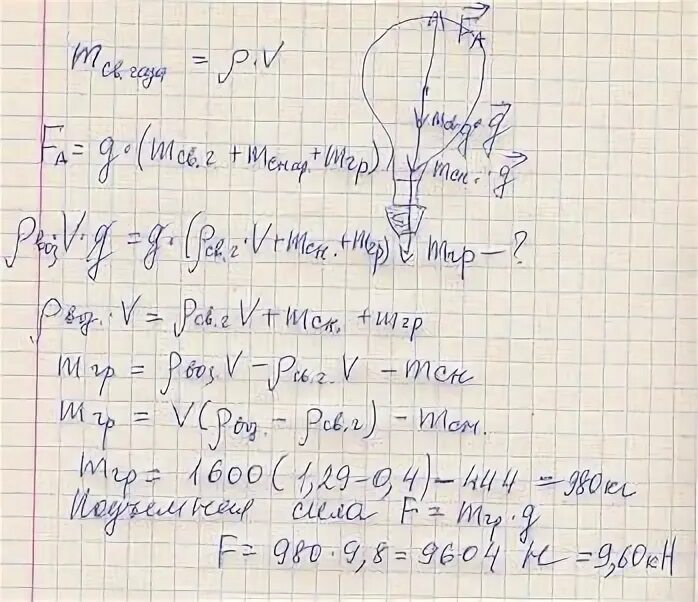 m св. газа = ρ·V
A F⃗A
mсв.г·g⃗
FA = g·(mсв.г + mснар + mгр)
mсн.·g⃗
ρвоз V·g = g·(ρсв.г·V + mсн. + mгр)
mгр – ?
ρвоз.·V = ρсв.г V + mсн. + mгр
mгр = ρвоз V – ρсв.г. V – mсн
mгр = V(ρвоз. – ρсв.г) – mсн.
mгр = 1600(1,29–0,4)–444 = 980кг
Подъемная сила F = mгр·g
F = 980·9,8 = 9604 Н = 9,60кН